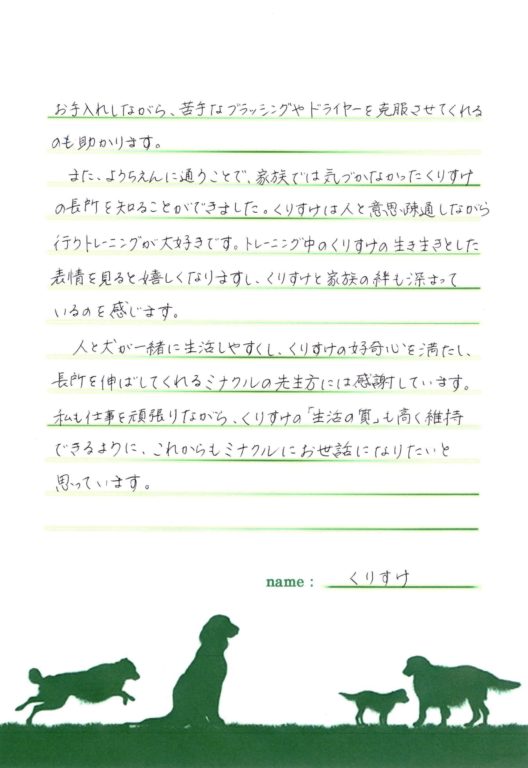 お手入れしながら、苦手なブラッシングやドライヤーを克服させてくれる
のも助かります。
また、ようちえんに通うことで、家族では気づかなかったくりすけ
の長所を知ることができました。くりすけは人と意思疎通しながら
行うトレーニングが大好きです。トレーニング中のくりすけの生き生きとした
表情を見ると嬉しくなりますし、くりすけと家族の絆も深まって
いるのを感じます。
人と犬が一緒に生活しやすくし、くりすけの好奇心を満たし、
長所を伸ばしてくれるミナクルの先生方には感謝しています。
私も仕事を頑張りながら、くりすけの「生活の質」も高く維持
できるように、これからもミナクルにお世話になりたいと
思っています。
name : くりすけ